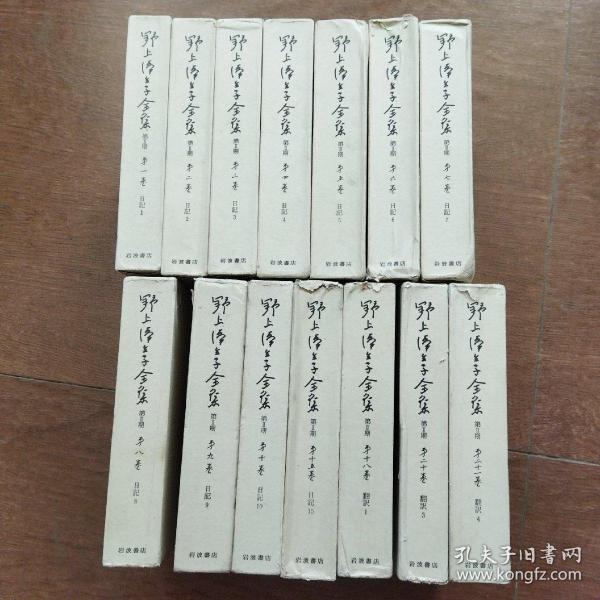 野上彌生子全集 第Ⅱ期 第一巻 日記1 岩波書店
野上彌生子全集 第Ⅱ期 第二巻 日記2 岩波書店
野上彌生子全集 第Ⅱ期 第三巻 日記3 岩波書店
野上彌生子全集 第Ⅱ期 第四巻 日記4 岩波書店
野上彌生子全集 第Ⅱ期 第五巻 日記5 岩波書店
野上彌生子全集 第Ⅱ期 第六巻 日記6 岩波書店
野上彌生子全集 第Ⅱ期 第七巻 日記7 岩波書店
野上彌生子全集 第Ⅱ期 第八巻 日記8 岩波書店
野上彌生子全集 第Ⅱ期 第九巻 日記9 岩波書店
野上彌生子全集 第Ⅱ期 第十巻 日記10 岩波書店
野上彌生子全集 第Ⅱ期 第十五巻 日記15 岩波書店
野上彌生子全集 第Ⅱ期 第十八巻 翻訳1 岩波書店
野上彌生子全集 第Ⅱ期 第二十巻 翻訳3 岩波書店
野上彌生子全集 第Ⅱ期 第二十一巻 翻訳4 岩波書店
孔夫子旧书网
www.kongfz.com